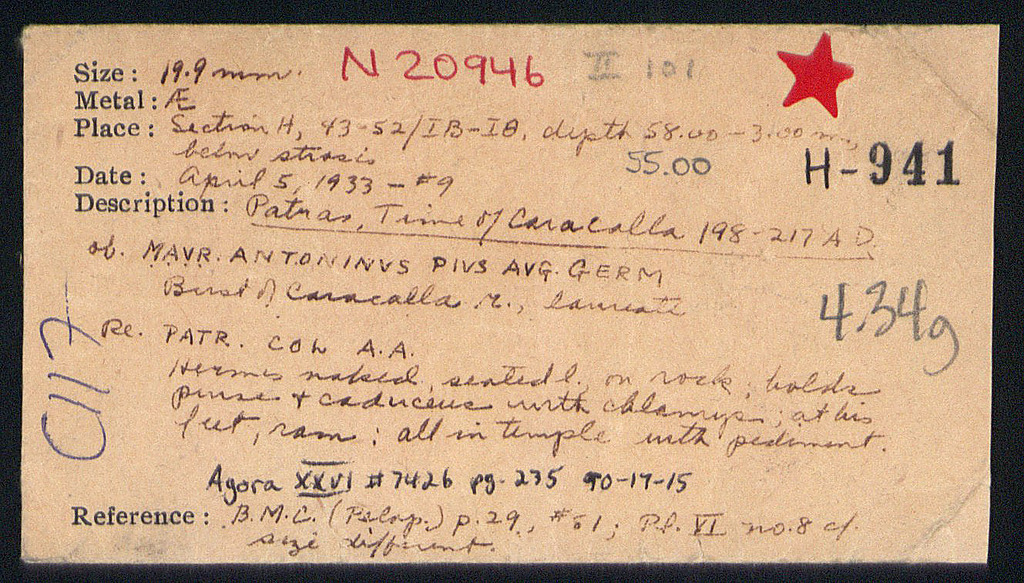 Size: 19.9 mm. N 20946 II 101
Metal: Æ
Place: Section H, 43-52/IB-IΘ, depth 58.00-3.00 m
below strosis 55.00 H-941
Date: April 5, 1933 - #9
Description: Patras, Time of Caracalla 198-217 A D.
ob. MAVR. ANTONINVS PIVS AVG. GERM
Bust of Caracalla r., laureate
4.34g
Re. PATR. COL A.A.
Hermes naked, seated l. on rock; holds
purse + caduceus with chlamys; at his
feet, ram; all in temple with pediment.
C117
Agora XXVI #7426 pg. 235 90-17-15
Reference: B.M.C. (Pelop.) p. 29, #61; Pl. VI no. 8 cf.
size different.